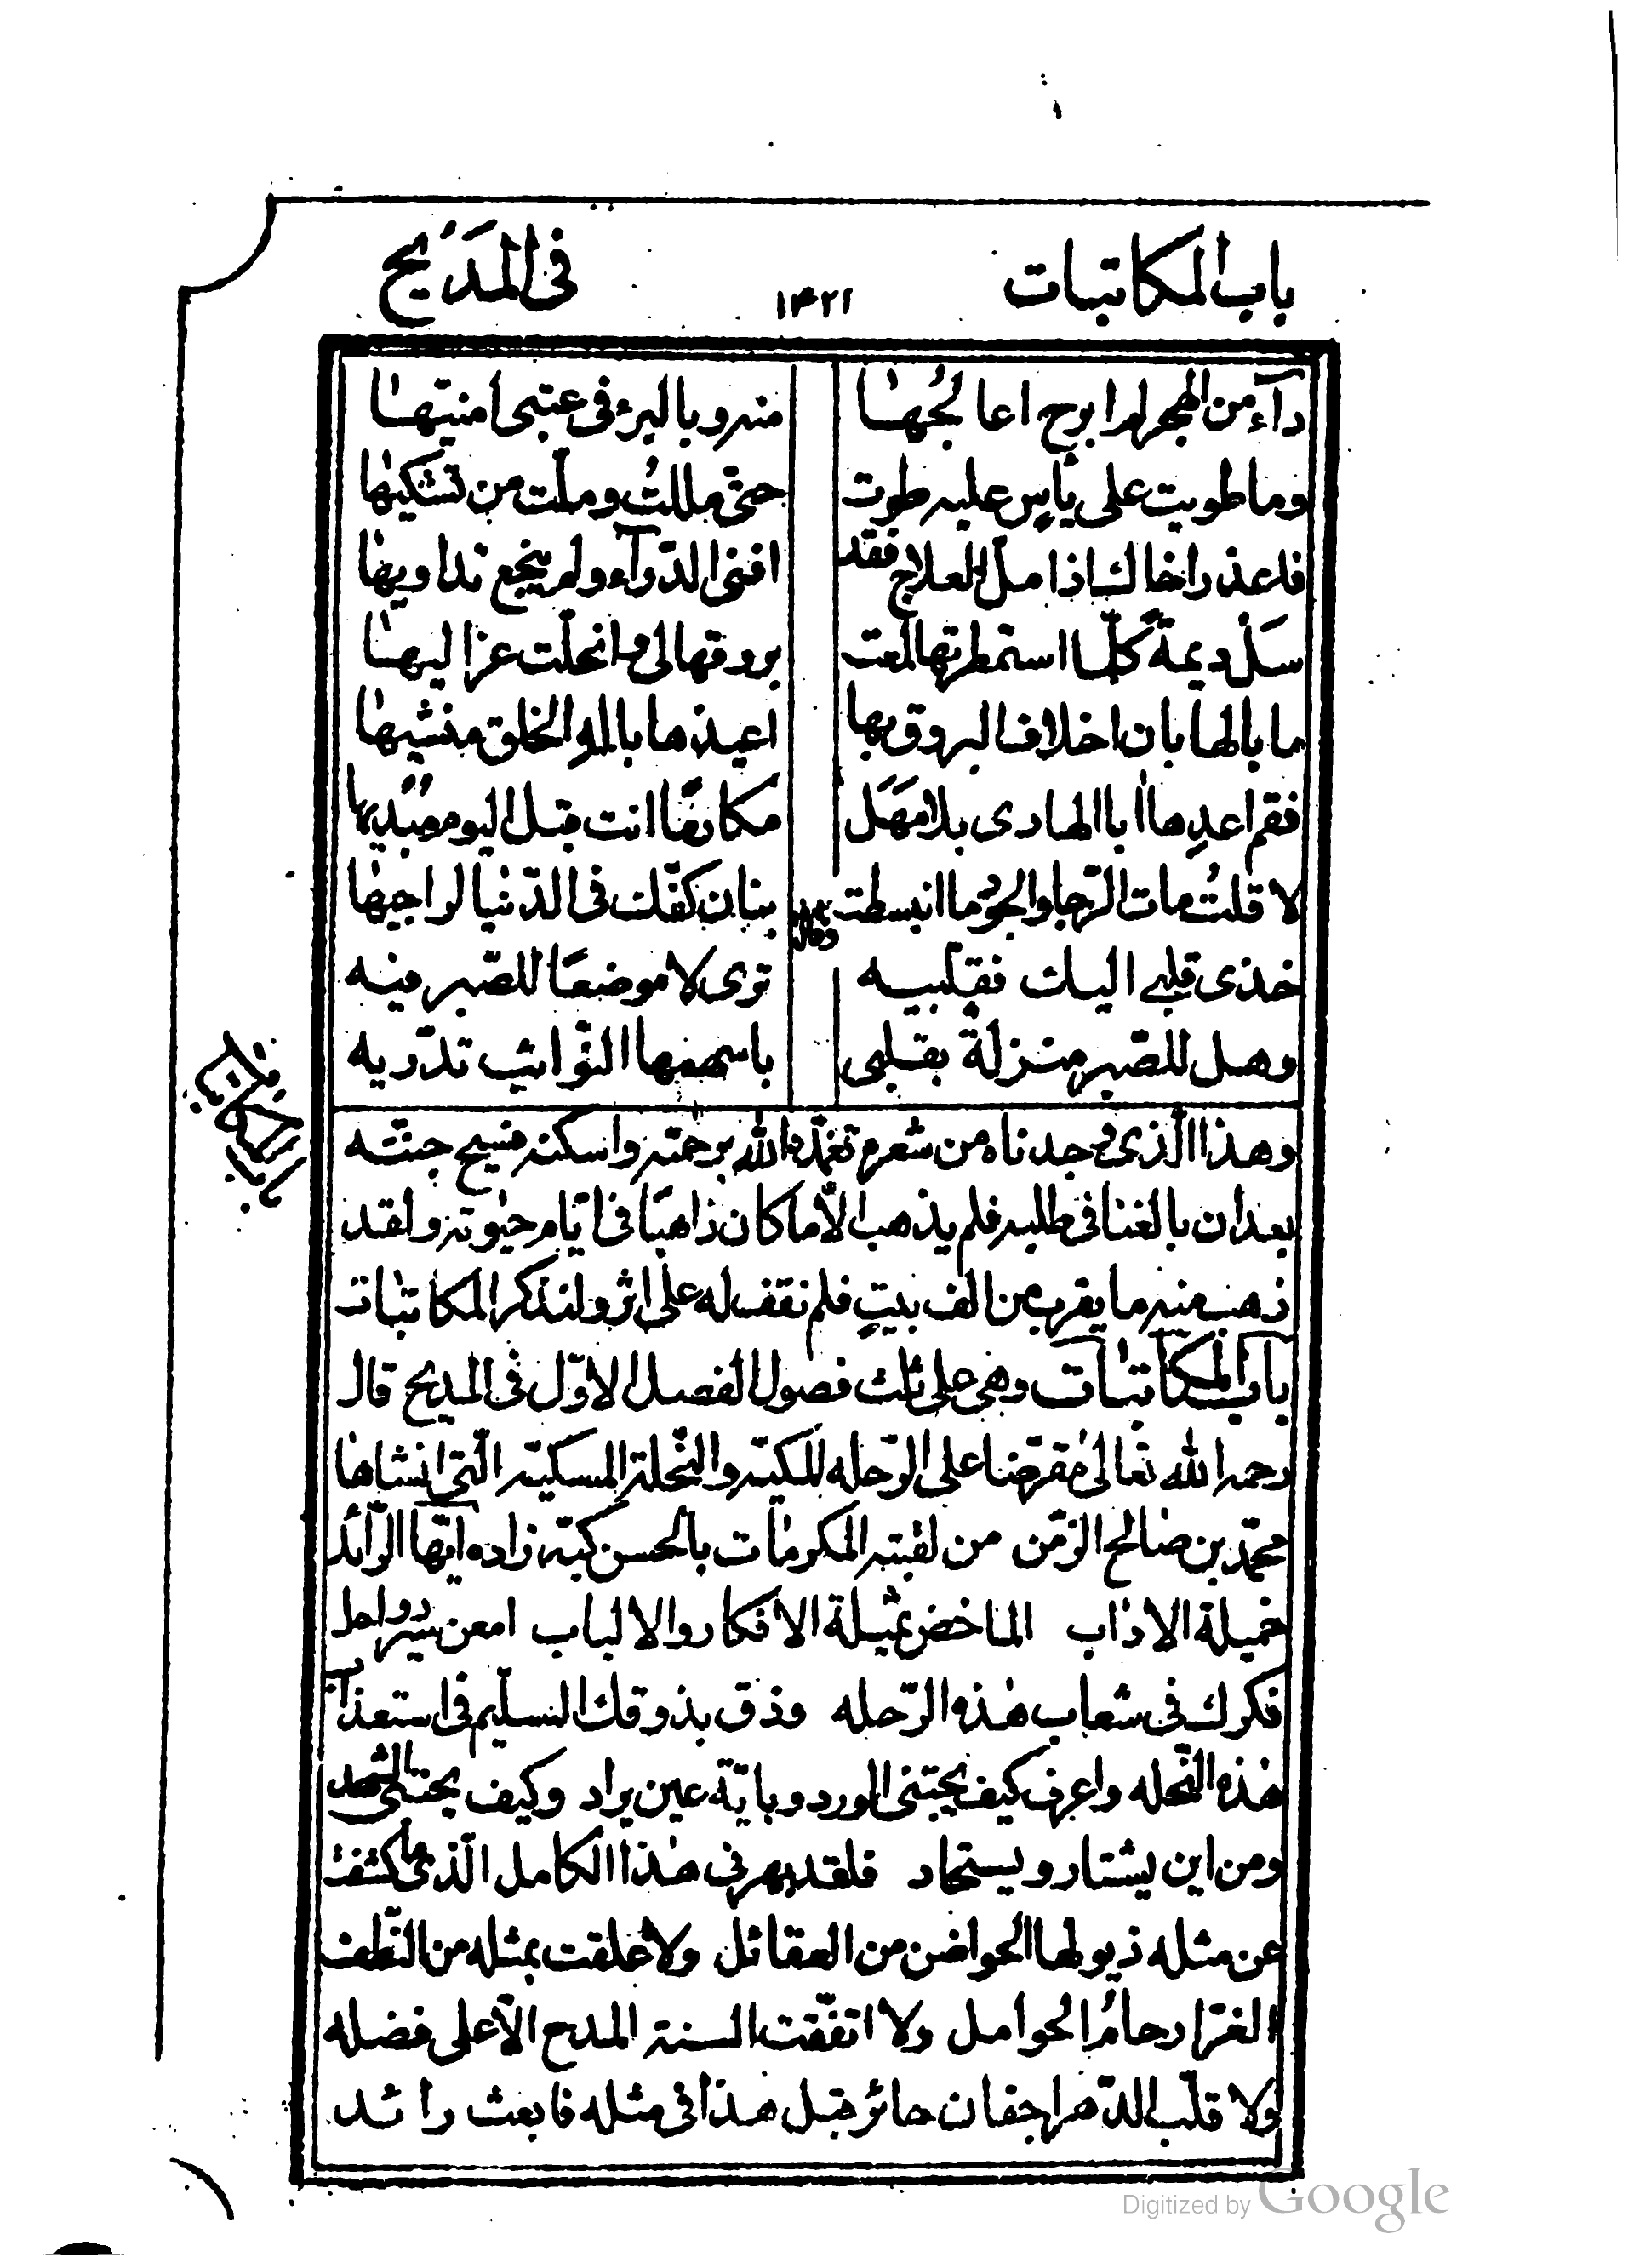 باب المكاتبات ١٤٢١ فى المَديح
دآء من الهجر لم ابرح اعالجُها منه وبالبرء فى عتبى امنيّتها
وما طويت على يأسٍ عليه طوت حتّى مللتُ وملّت من تشكيها
فاعذر اخاك اذا ملّ العلاج فقد افنى الدّوآء ولم ينجع تداويها
سَلْ ديمةً كلّما استمطرتها لمعت بروقها لى وانحلّت عزاليها
ما بالها بان اخلاف البروق بها اعيذها بالله الخلق منشيها
فقم اعدِها ابا الهادى بلا مَهَل مكانها انت قبل اليوم مُبديها
لا قلتُ مات الرّجا والجوُد ما انبسطت بنان كفّك فى الدّنيا لراجيها
وقال
خذى قلبى اليك فقلّبيه ترى لا موضعًا للصّبر فيه
وهل للصّبر منزلة بقلبى باسهمها النّوائب تدّريه
وهذا الّذى وجدناه من شعره تغمّده الله برحمته واسكنه فسيح جنّته
بعد ان بالغنا فى طلبه فلم يذهب الّا ما كان ذاهبًا فى ايّام حيوته ولقد
ذهب منه ما يقرب من الف بيتٍ فلم نقف له على اثر ولنذكر المكاتبات
باب المكاتبات
باب المكاتبات وهى على ثلث فصول الفصل الاوّل فى المديح قال
رحمه الله تعالى مقرّضا على الرّحله المكيّه والنّحلة المسكيّه الّتى انشاها
محمّد بن صالح الزّمن من لقّبته المكرمات بالحسن كبّه زاده ايّها الرّائد
خميلة الاداب الماخض ثميلة الافكار والالباب امعن سير رواحل
فكرك فى شعاب هذه الرّحله وذق بذوقك السليم فى استعذاب
هذه النّحله واعرف كيف يجتنى الورد وبايّة عين يراد وكيف يجتلى الشهد
ومن اين يشتار ويستجاد فلقد بهرنى هذا الكامل الّذى ما كشفت
عن مثله ذيولها الحواضن من العقائل ولا علقت بمثله من النّطف
الغرّ ارحامُ الحوامل ولا اتّفقت السنة المدح الّا على فضله
ولا قلّب الدّهر اجفان حائر قبل هذا فى مثله فابعث رائد
Digitized by Google